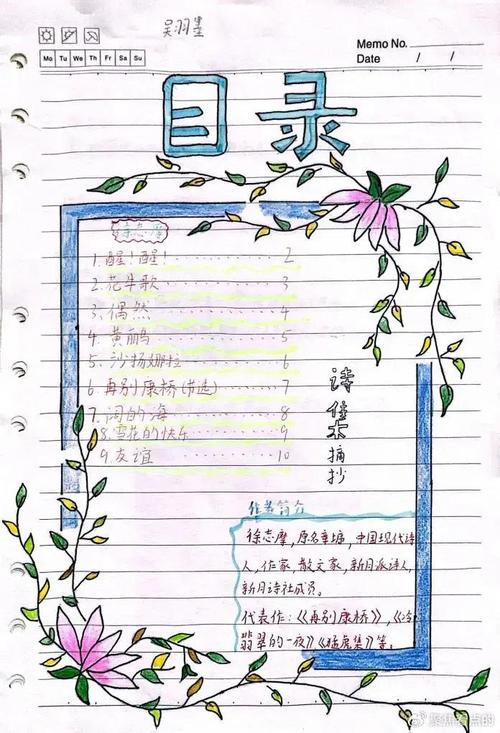 吴羽墨
Memo No.
Mo Tu We Th Fr Sa Su
Date / /
目录
徐志摩
1.醒!醒!……2
2.花牛歌……3
3.偶然……4
4.黄鹂……5
5.沙扬娜拉……6
6.再别康桥(节选)……7
7.阔的海……8
8.雪花的快乐……9
9.友谊……10
诗
佳
木
摘
抄
作者简介
徐志摩,原名章垿,中国现代诗
人,作家,散文家,新月派诗人,
新月诗社成员。
代表作:《再别康桥》,《
翡翠的一夜》《猛虎集》等。